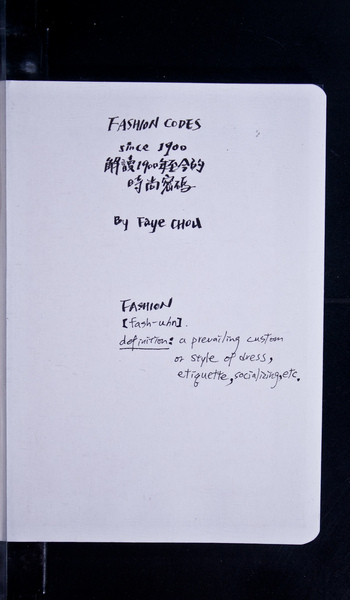 FASHION CODES
since 1900
解讀1900年至今的
時尚密碼
By Faye CHOU
FASHION
[fash-uhn].
definition: a prevailing custom
or style of dress,
etiquette, socializing, etc.